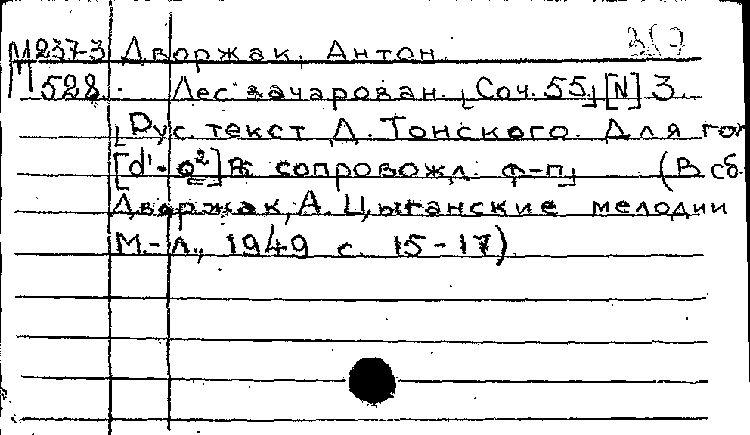 М237-3 Дворжак, Антон 357
М 528. Лес зачарован. [Соч. 55] [N] 3.
[Рус. текст Д. Тонского. Для гол
[d¹-g²] сопровожд. ф-п] (В сб.
Дворжак, А. Цыганские мелодии
М.-Л., 1949 с. 15-17)